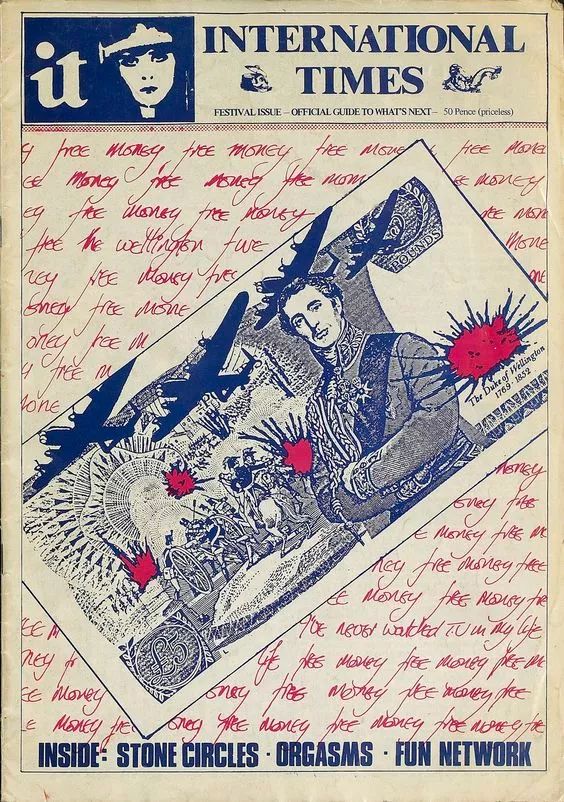 it
INTERNATIONAL
TIMES
FESTIVAL ISSUE – OFFICIAL GUIDE TO WHAT'S NEXT – 50 Pence (priceless)
y free money free money free money free mone
ee money free money free mon ee money
ey free money free money ee mon
free the wellington five mone
ney free money free one
oney free mone
oney free m
y free m
one
POUNDS
The Duke of Wellington
1769-1852
£5
money
oney free
e money free mo
ney free money free
ee money free money fre
ee m I've never watched T.V in my life
ney fr life free money free money free m
ee money oney free money free money free
e money free oney free money free money free money fre
INSIDE: STONE CIRCLES · ORGASMS · FUN NETWORK